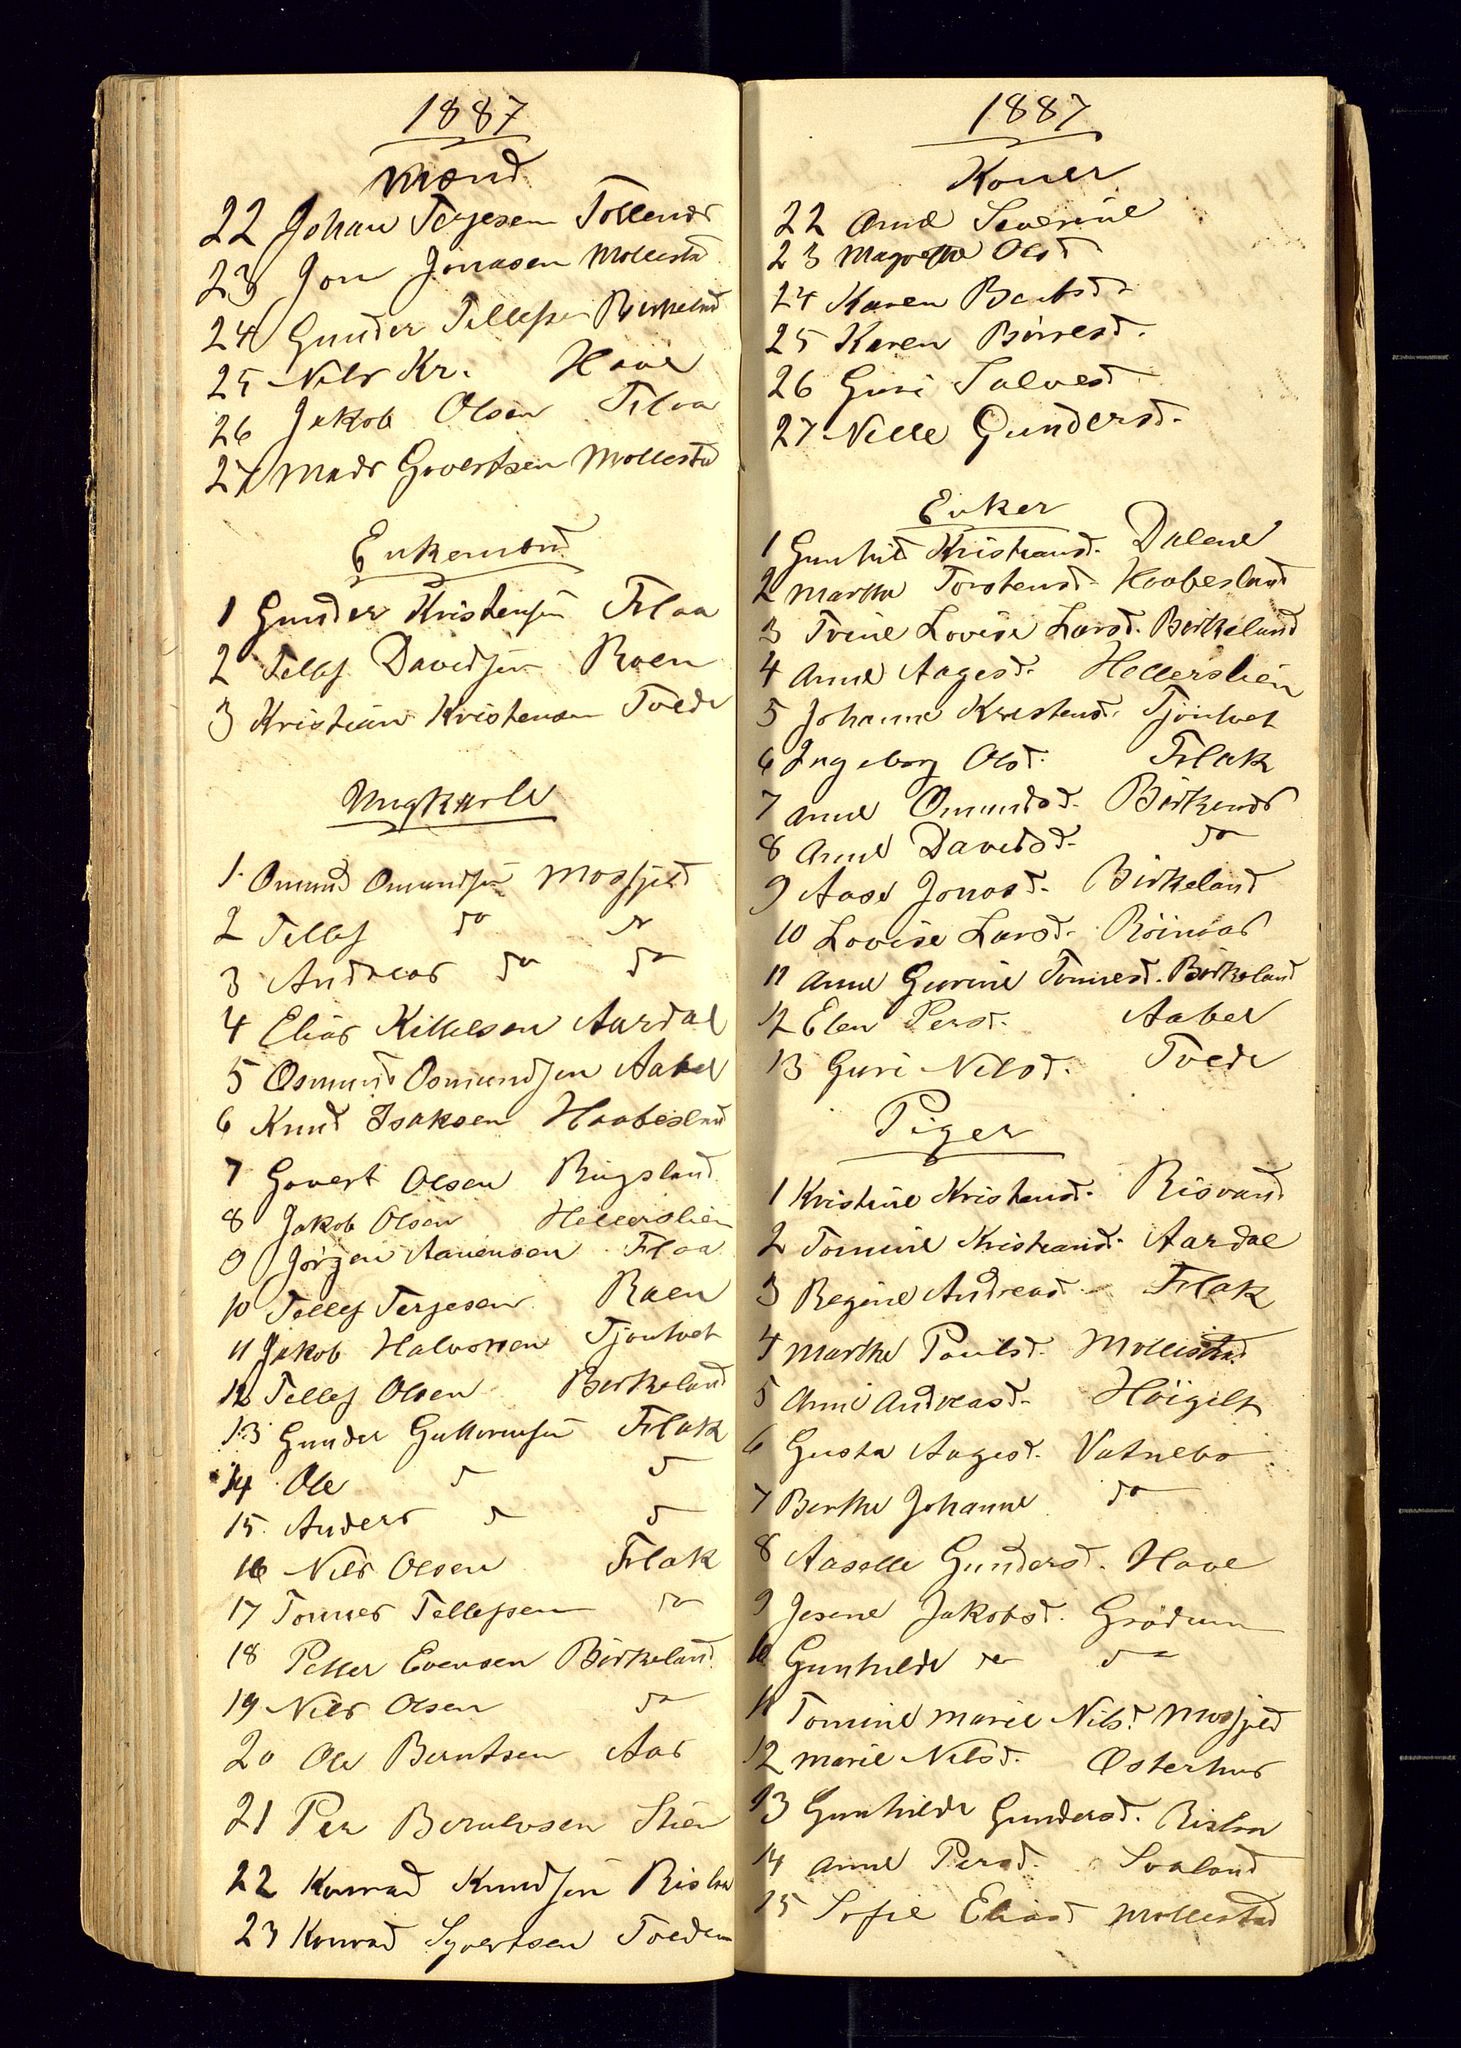 1887
Mænd
22 Johan Terjesen Tollenes
23 Jon Jonasen Mollestad
24 Gunder Tellefsen Birkeland
25 Nils Kr. Have
26 Jakob Olsen Flaa
27 Mads Govertsen Mollestad
Enkemænd
1 Gunder Kristensen Flaa
2 Tellef Davidsen Roen
3 Kristian Kristensen Tvede
Ungkarle
1. Omund Omundsen Mosfjeld
2 Tellef do do
3 Andreas do do
4 Elias Kittelsen Aardal
5 Osmund Osmundsen Aabel
6 Knud Isaksen Haabesland
7 Govert Olsen Rugsland
8 Jakob Olsen Hellerslien
9 Jörgen Aanensen Flaa
10 Tellef Terjesen Roen
11 Jakob Halvorsen Tjøntvet
12 Tellef Olsen Berkeland
13 Gunder Guttormsen Flak
14 Ole d d
15 Anders d d
16 Nils Olsen Flak
17 Tomes Tellefsen do
18 Petter Evensen Birkeland
19 Nils Olsen do
20 Ole Berntsen Aas
21 Per Stien
22 Konrad Knudsen Rislaa
23 Konrad Syvertsen Tveden
1887
Koner
22 Anne Severine
23 Magrethe Olsd
24 Karen Berntsd
25 Karen Börresd.
26 Guri Salvesd
27 Nelle Gundersd.
Enker
1 Gunhild Kristiansd. Dalene
2 Marthe Torstensd. Haabesland
3 Trine Lovise Larsd. Birkeland
4 Anne Aagesd. Hellerslien
5 Johanne Kristensd. Tjöntvet
6 Ingeborg Olsd. Flak
7 Anne Omundsd. Birkenes
8 Anne Davidsd. do
9 Aase Jonasd. Birkeland
10 Lovise Larsd. Röinaas
11 Anne Gurine Tomesd. Birkeland
12 Elen Persd. Aabel
13 Guri Nilsd. Tvede
Piger
1 Kristine Kristensd. Risvand
2 Tomine Kristiansd. Aardal
3 Regine Andreasd. Flak
4 Marthe Paulsd. Mollestad
5 Anne Andreasd. Höigilt
6 Gusta Aagesd. Vatnebo
7 Berthe Johanne do
8 Aaselle Gundersd. Have
9 Jesene Jakobsd. Grödum
10 Gunhilde do do
11 Tomine Marie Nilsd. Mosfjeld
12 Marie Nilsd. Østerhus
13 Gunhilde Gundersd. Rislaa
14 Anne Persd. Svaland
15 Sofie Eliasd Mollestad